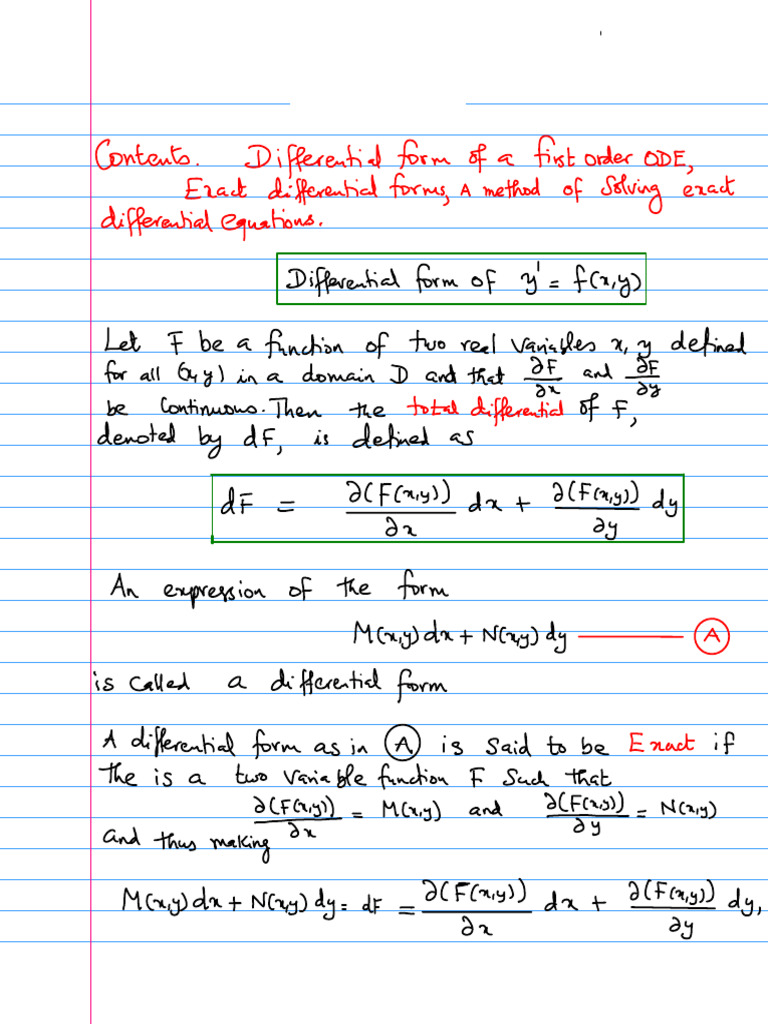 Contents. Differential form of a first order ODE,
Exact differential forms, A method of solving exact
differential equations.
Differential form of y' = f(x,y)
Let F be a function of two real variables x, y defined
for all (x,y) in a domain D and that ∂F/∂x and ∂F/∂y
be continuous. Then the total differential of F,
denoted by dF, is defined as
dF = ∂(F(x,y))/∂x dx + ∂(F(x,y))/∂y dy
An expression of the form
M(x,y) dx + N(x,y) dy ——— A
is called a differential form
A differential form as in A is said to be Exact if
the is a two variable function F such that
∂(F(x,y))/∂x = M(x,y) and ∂(F(x,y))/∂y = N(x,y)
and thus making
M(x,y) dx + N(x,y) dy = dF = ∂(F(x,y))/∂x dx + ∂(F(x,y))/∂y dy,